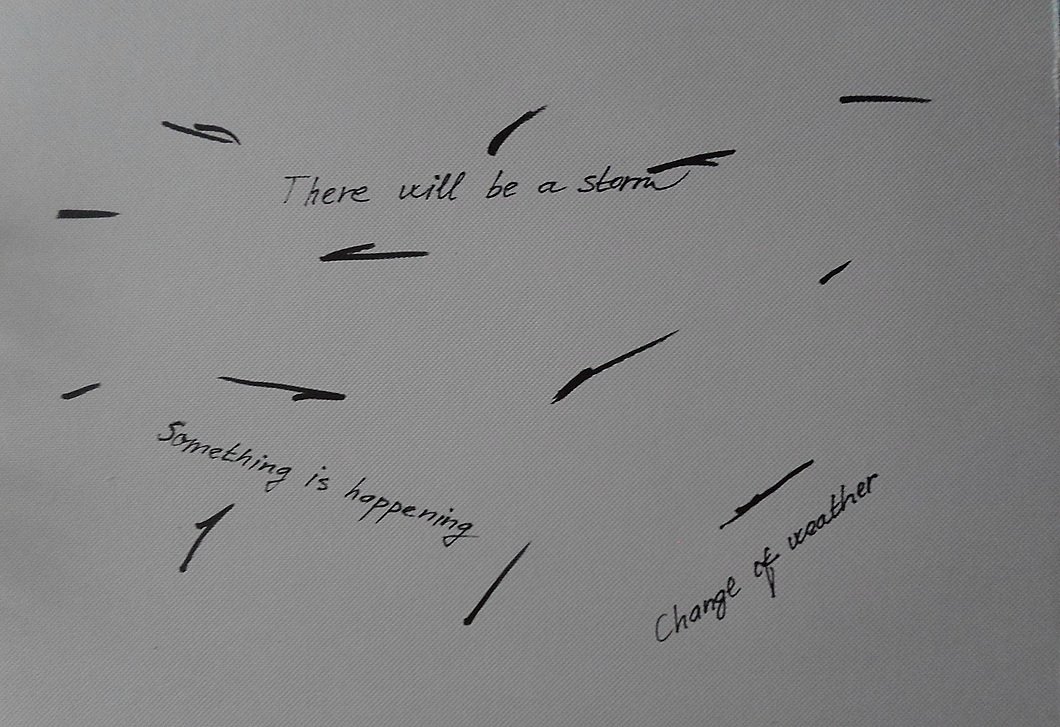 There will be a storm
Something is happening
Change of weather